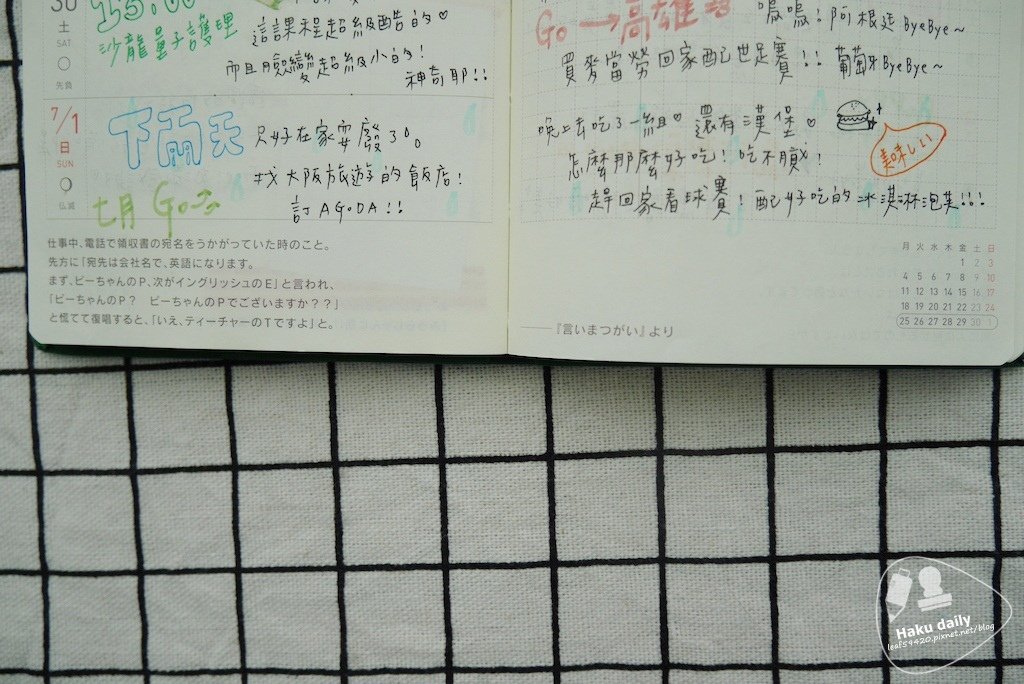 30
土
SAT
先負
沙龍量子護理
這課程超級酷的♡
而且臉變超級小的!
神奇耶!!
7/1
日
SUN
仏滅
下雨天
只好在家耍廢了。
找大阪旅遊的飯店!
訂AGODA!!
七月Go
仕事中、電話で領収書の宛名をうかがっていた時のこと。
先方に「宛先は会社名で、英語になります。
まず、ピーちゃんのP、次がイングリッシュのE」と言われ、
「ピーちゃんのP? ピーちゃんのPでございますか??」
と慌てて復唱すると、「いえ、ティーチャーのTですよ」と。
Go→高雄
嗚嗚!阿根廷ByeBye~
買麥當勞回家配世足賽!! 葡萄牙ByeBye~
晚上去吃了一組♡ 還有漢堡♡
美味しい
怎麼那麼好吃!吃不膩!
趕回家看球賽!配好吃的冰淇淋泡芙!!!
月 火 水 木 金 土 日
1 2 3
4 5 6 7 8 9 10
11 12 13 14 15 16 17
18 19 20 21 22 23 24
25 26 27 28 29 30 1
──『言いまつがい』より
Haku daily
leaf59420.pixnet.net/blog